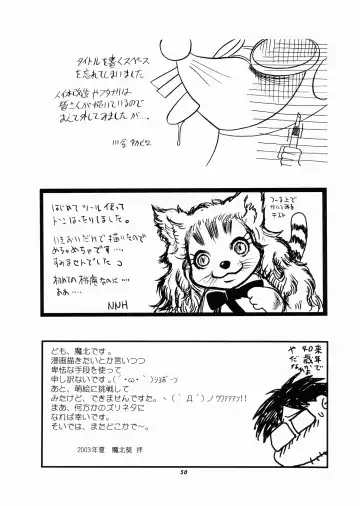 タイトルを書くスペース
を忘れてしまいました
人体改造やフタナリは
皆さんが描いているので
あえて外してみましたが…。
はじめてツール使って
トーンはったりしました。
いきおいだけで描いたので
めちゃめちゃです
すみませんでした
初めての裕庵なのに…
ああ…
NNH
つーる上で
かいてある
テスト
来年で
40歳かよ
やだな
ども、魔北です。
漫画描きたいとか言いつつ
卑怯な手段を使って
申し訳ないです。(´・ω・`)ショボーン
あと、萌絵に挑戦して
みたけど、できませんですた。ヽ(`Д´)ノウワァァァン!!
まあ、何方かのズリネタに
なれば幸いです。
そいでは、またどこかで～。
2003年夏　魔北葵 拝
50